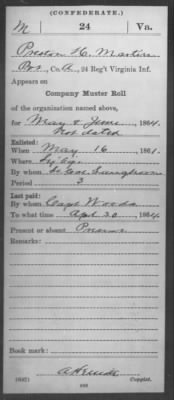 (CONFEDERATE.)
M 24 Va.
Preston H. Martin
Pvt., Co. A., 24 Reg't Virginia Inf.
Appears on
Company Muster Roll
of the organization named above,
for May & June 1864.
Not dated
Enlisted:
When May 16, 1861.
Where
By whom
Period 3
Last paid:
By whom Capt Woods
To what time Apr 30, 1864.
Present or absent Present
Remarks:
Book mark:
(642)
Copyist.